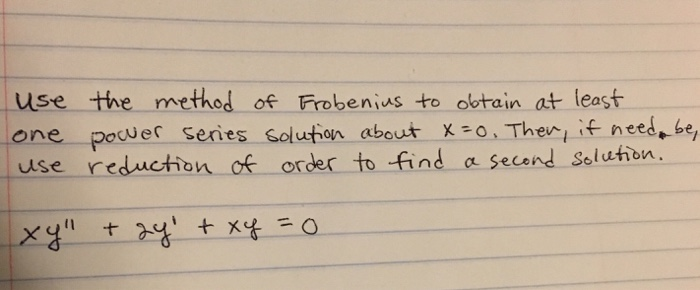 Use the method of Frobenius to obtain at least
one power series solution about x=0. Then, if need be,
use reduction of order to find a second solution.
xy'' + 2y' + xy = 0